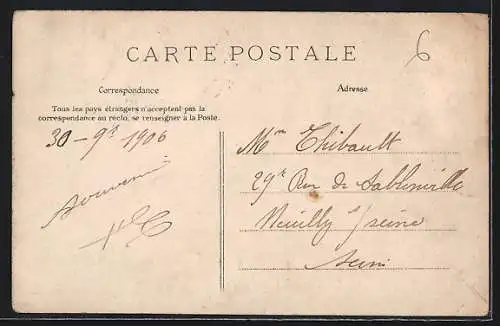 CARTE POSTALE
6
Correspondance
Adresse
Tous les pays étrangers n'acceptent pas la
correspondance au recto, se renseigner à la Poste.
30 - 9bre 1906
Souvenir
Mme Thibault
29 Rue de Sablonville
Neuilly s/seine
Seine